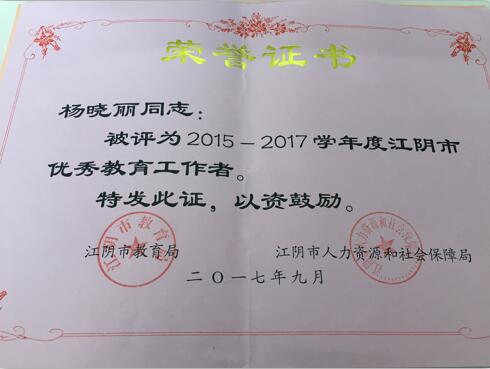 荣誉证书
杨晓丽同志：
被评为2015－2017学年度江阴市
优秀教育工作者。
特发此证，以资鼓励。
江阴市教育局 江阴市人力资源和社会保障局
二〇一七年九月